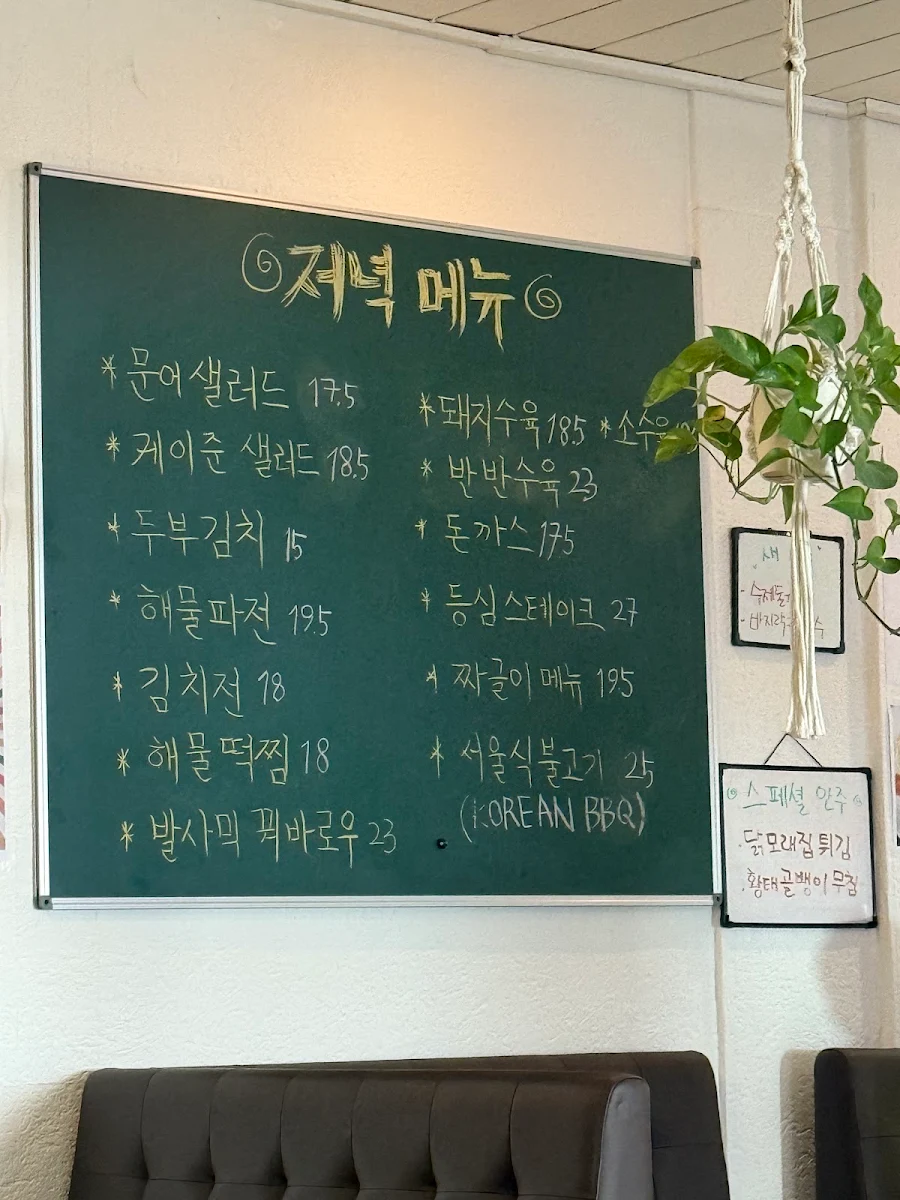 저녁 메뉴
* 문어 샐러드 17.5
* 케이준 샐러드 18.5
* 두부김치 15
* 해물파전 19.5
* 김치전 18
* 해물떡찜 18
* 발사믹 꿔바로우 23
* 돼지수육 18.5 * 소수육
* 반반수육 23
* 돈까스 17.5
* 등심스테이크 27
* 짜글이 메뉴 19.5
* 서울식불고기 25
(KOREAN BBQ)
스페셜 안주
· 닭모래집 튀김
· 황태골뱅이 무침